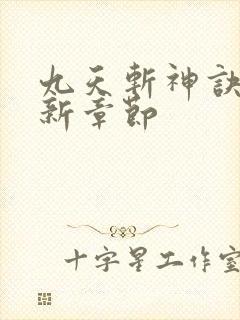 九天斬神訣
新章節
十字星工作室